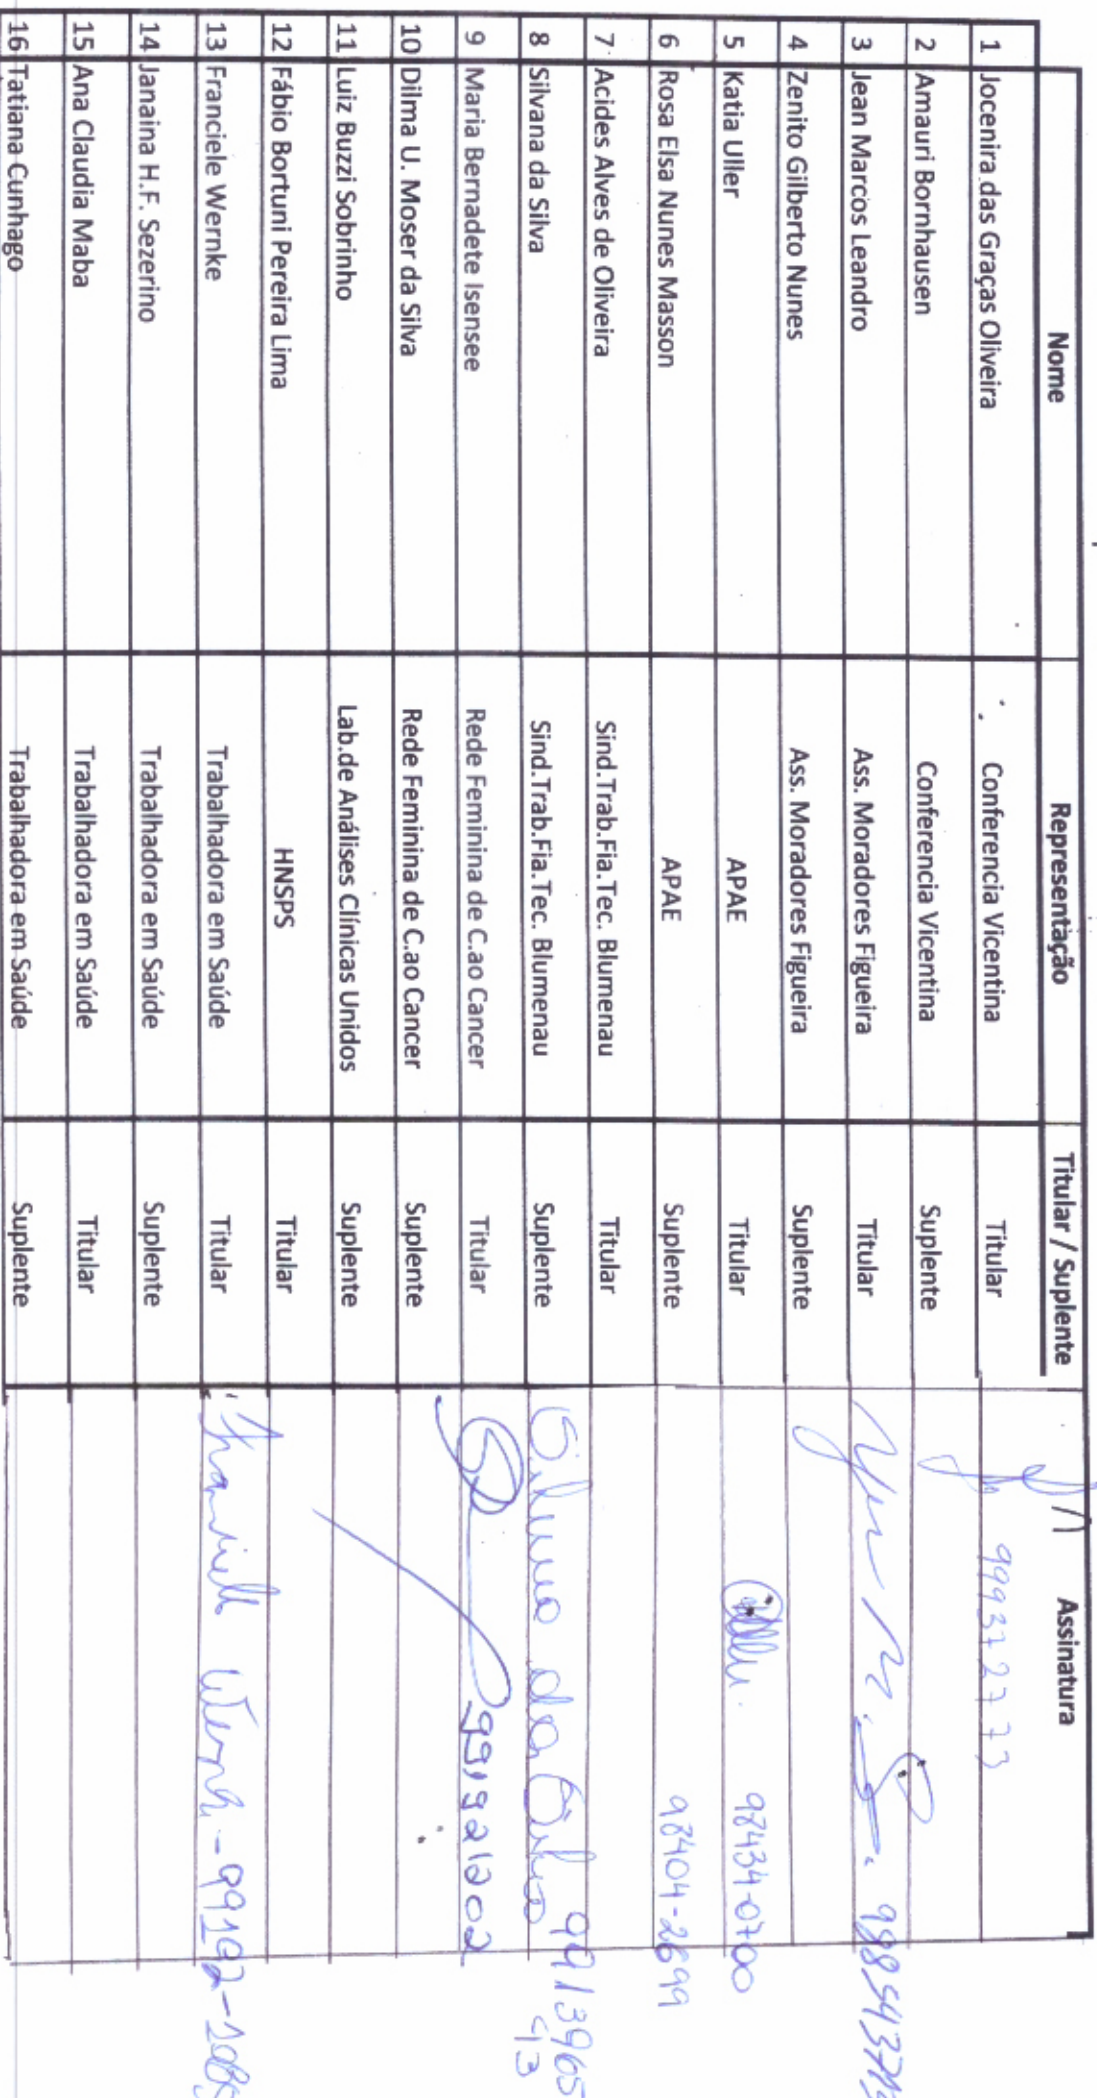 Nome Representação Titular / Suplente Assinatura
1 Jocenira das Graças Oliveira Conferencia Vicentina Titular 999372773
2 Amauri Bornhausen Conferencia Vicentina Suplente
3 Jean Marcos Leandro Ass. Moradores Figueira Titular
4 Zenito Gilberto Nunes Ass. Moradores Figueira Suplente
5 Katia Uller APAE Titular 98434-0700
6 Rosa Elsa Nunes Masson APAE Suplente 98404-2699
7 Acides Alves de Oliveira Sind.Trab.Fia.Tec. Blumenau Titular
8 Silvana da Silva Sind.Trab.Fia.Tec. Blumenau Suplente Silvana da Silva 9913965
43
9 Maria Bernadete Isensee Rede Feminina de C.ao Cancer Titular 991921202
10 Dilma U. Moser da Silva Rede Feminina de C.ao Cancer Suplente
11 Luiz Buzzi Sobrinho Lab.de Análises Clínicas Unidos Suplente
12 Fábio Bortuni Pereira Lima HNSPS Titular
13 Franciele Wernke Trabalhadora em Saúde Titular Franciele Wernke - 99192-108
14 Janaina H.F. Sezerino Trabalhadora em Saúde Suplente
15 Ana Claudia Maba Trabalhadora em Saúde Titular
16 Tatiana Cunhago Trabalhadora em Saúde Suplente